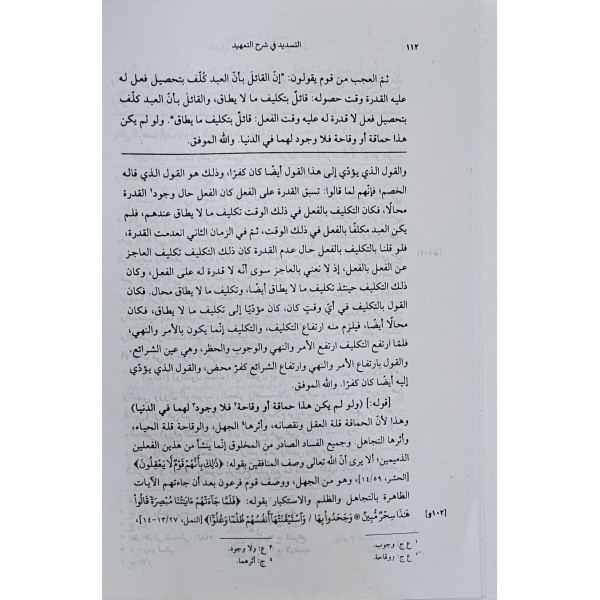 ١١٢
التسديد في شرح التمهيد
ثمّ العجب من قوم يقولون: "إنّ القائل بأنّ العبد كُلّف بتحصيل فعل له
عليه القدرة وقت حصوله: قائلٌ بتكليف ما لا يطاق، والقائلَ بأنّ العبد كلّف
بتحصيل فعل لا قدرة له عليه وقت الفعل: قائلٌ بتكليف ما يطاق". ولو لم يكن
هذا حماقة أو وقاحة فلا وجود لهما في الدنيا. والله الموفق.
والقول الذي يؤدّي إلى هذا القول أيضًا كان كفرًا، وذلك هو القول الذي قاله
الخصم؛ فإنّهم لما قالوا: تسبق القدرة على الفعل كان الفعل حال وجود١ القدرة
محالًا، فكان التكليف بالفعل في ذلك الوقت تكليف ما لا يطاق عندهم، فلم
يكن العبد مكلفًا بالفعل في ذلك الوقت، ثمّ في الزمان الثاني انعدمت القدرة،
فلو قلنا بالتكليف بالفعل حال عدم القدرة كان ذلك التكليف تكليف العاجز
عن الفعل بالفعل، إذ لا نعني بالعاجز سوى أنّه لا قدرة له على الفعل، وكان
ذلك التكليف حينئذ تكليف ما لا يطاق أيضًا، وتكليف ما لا يطاق محال. فكان
القول بالتكليف في أيّ وقتٍ كان، كان مؤدّيًا إلى تكليف ما لا يطاق، فكان
محالًا أيضًا، فيلزم منه ارتفاع التكليف، والتكليف إنّما يكون بالأمر والنهي،
فلمّا ارتفع التكليف ارتفع الأمر والنهي والوجوب والحظر، وهي عين الشرائع.
والقول بارتفاع الأمر والنهي وارتفاع الشرائع كفر محض، والقول الذي يؤدّي
إليه أيضًا كان كفرًا. والله الموفق.
[قوله:] (ولو لم يكن هذا حماقة أو وقاحة٢ فلا وجود٣ لهما في الدنيا)
وهذا لأنّ الحماقة قلة العقل ونقصانه، وأثرها٤ الجهل، والوقاحة قلة الحياء،
وأثرها التجاهل. وجميع الفساد الصادر من المخلوق إنّما ينشأ من هذين الفعلين
الذميمين؛ ألا يرى أنّ الله تعالى وصف المنافقين بقوله: ﴿ذَٰلِكَ بِأَنَّهُمْ قَوْمٌ لَا يَعْقِلُونَ﴾
[الحشر، ١٤/٥٩]، وهو من الجهل، ووصف قوم فرعون بعد أن جاءتهم الآيات
الظاهرة بالتجاهل والظلم والاستكبار بقوله: ﴿فَلَمَّا جَاءَتْهُمْ ءَايَٰتُنَا مُبْصِرَةً قَالُوا۟
[١٠٢و]
هَٰذَا سِحْرٌ مُّبِينٌ ۞ وَجَحَدُوا۟ بِهَا / وَٱسْتَيْقَنَتْهَآ أَنفُسُهُمْ ظُلْمًا وَعُلُوًّا﴾ [النمل، ١٣/٢٧-١٤]،
١ ع ج: وجوب.
٢ ع ج: ووقاحة.
٣ ع: ولا وجود.
٤ ج: أثرهما.